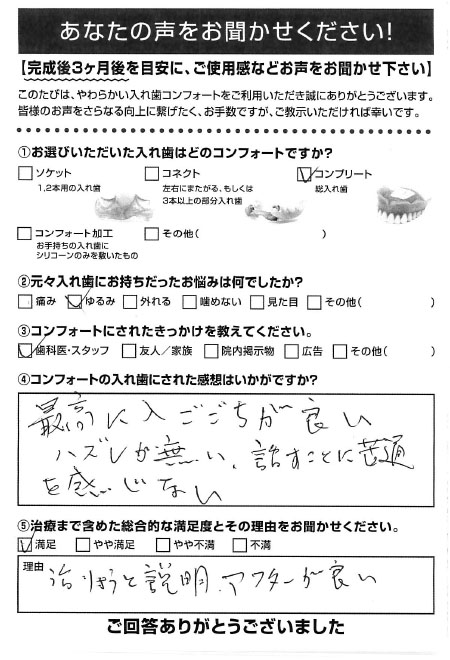 あなたの声をお聞かせください!
【完成後3ヶ月後を目安に、ご使用感などお声をお聞かせ下さい】
このたびは、やわらかい入れ歯コンフォートをご利用いただき誠にありがとうございます。
皆様のお声をさらなる向上に繋げたく、お手数ですが、ご教示いただければ幸いです。
①お選びいただいた入れ歯はどのコンフォートですか?
ソケット コネクト コンプリート
1,2本用の入れ歯 左右にまたがる、もしくは 総入れ歯
3本以上の部分入れ歯
コンフォート加工 その他( )
お手持ちの入れ歯に
シリコーンのみを敷いたもの
②元々入れ歯にお持ちだったお悩みは何でしたか?
痛み ゆるみ 外れる 噛めない 見た目 その他( )
③コンフォートにされたきっかけを教えてください。
歯科医・スタッフ 友人/家族 院内掲示物 広告 その他( )
④コンフォートの入れ歯にされた感想はいかがですか?
最高に入ごごちが良い
ハズレが無い、話すことに苦通
を感じない
⑤治療まで含めた総合的な満足度とその理由をお聞かせください。
満足 やや満足 やや不満 不満
理由 治りょうと説明、アフターが良い
ご回答ありがとうございました